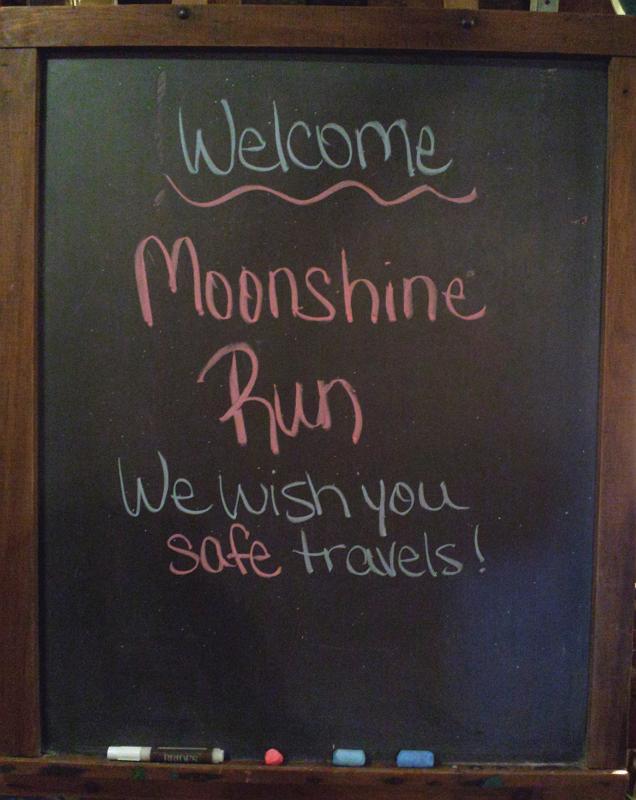 Welcome
Moonshine
Run
We wish you
safe travels!